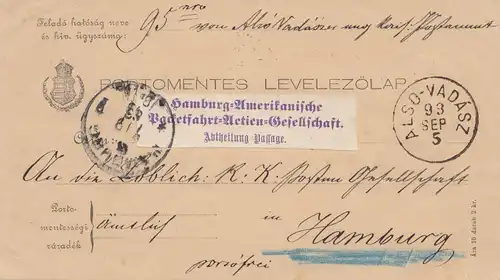 Feladó hatóság neve
és hiv. ügyszáma:
95 nro von Alsó Vadászer ung. königl. Postamt
PORTOMENTES LEVELEZŐLAP
Hamburg-Amerikanische
Packetfahrt-Actien-Gesellschaft.
Abtheilung Passage.
ALSÓ-VADÁSZ
93
SEP
5
An die Löblich: K. K. Posten Gesellschaft
Porto-
mentességi
záradék
Ámtlich
in
Hamburg
portofrei
Ára 10 darab 2 kr.